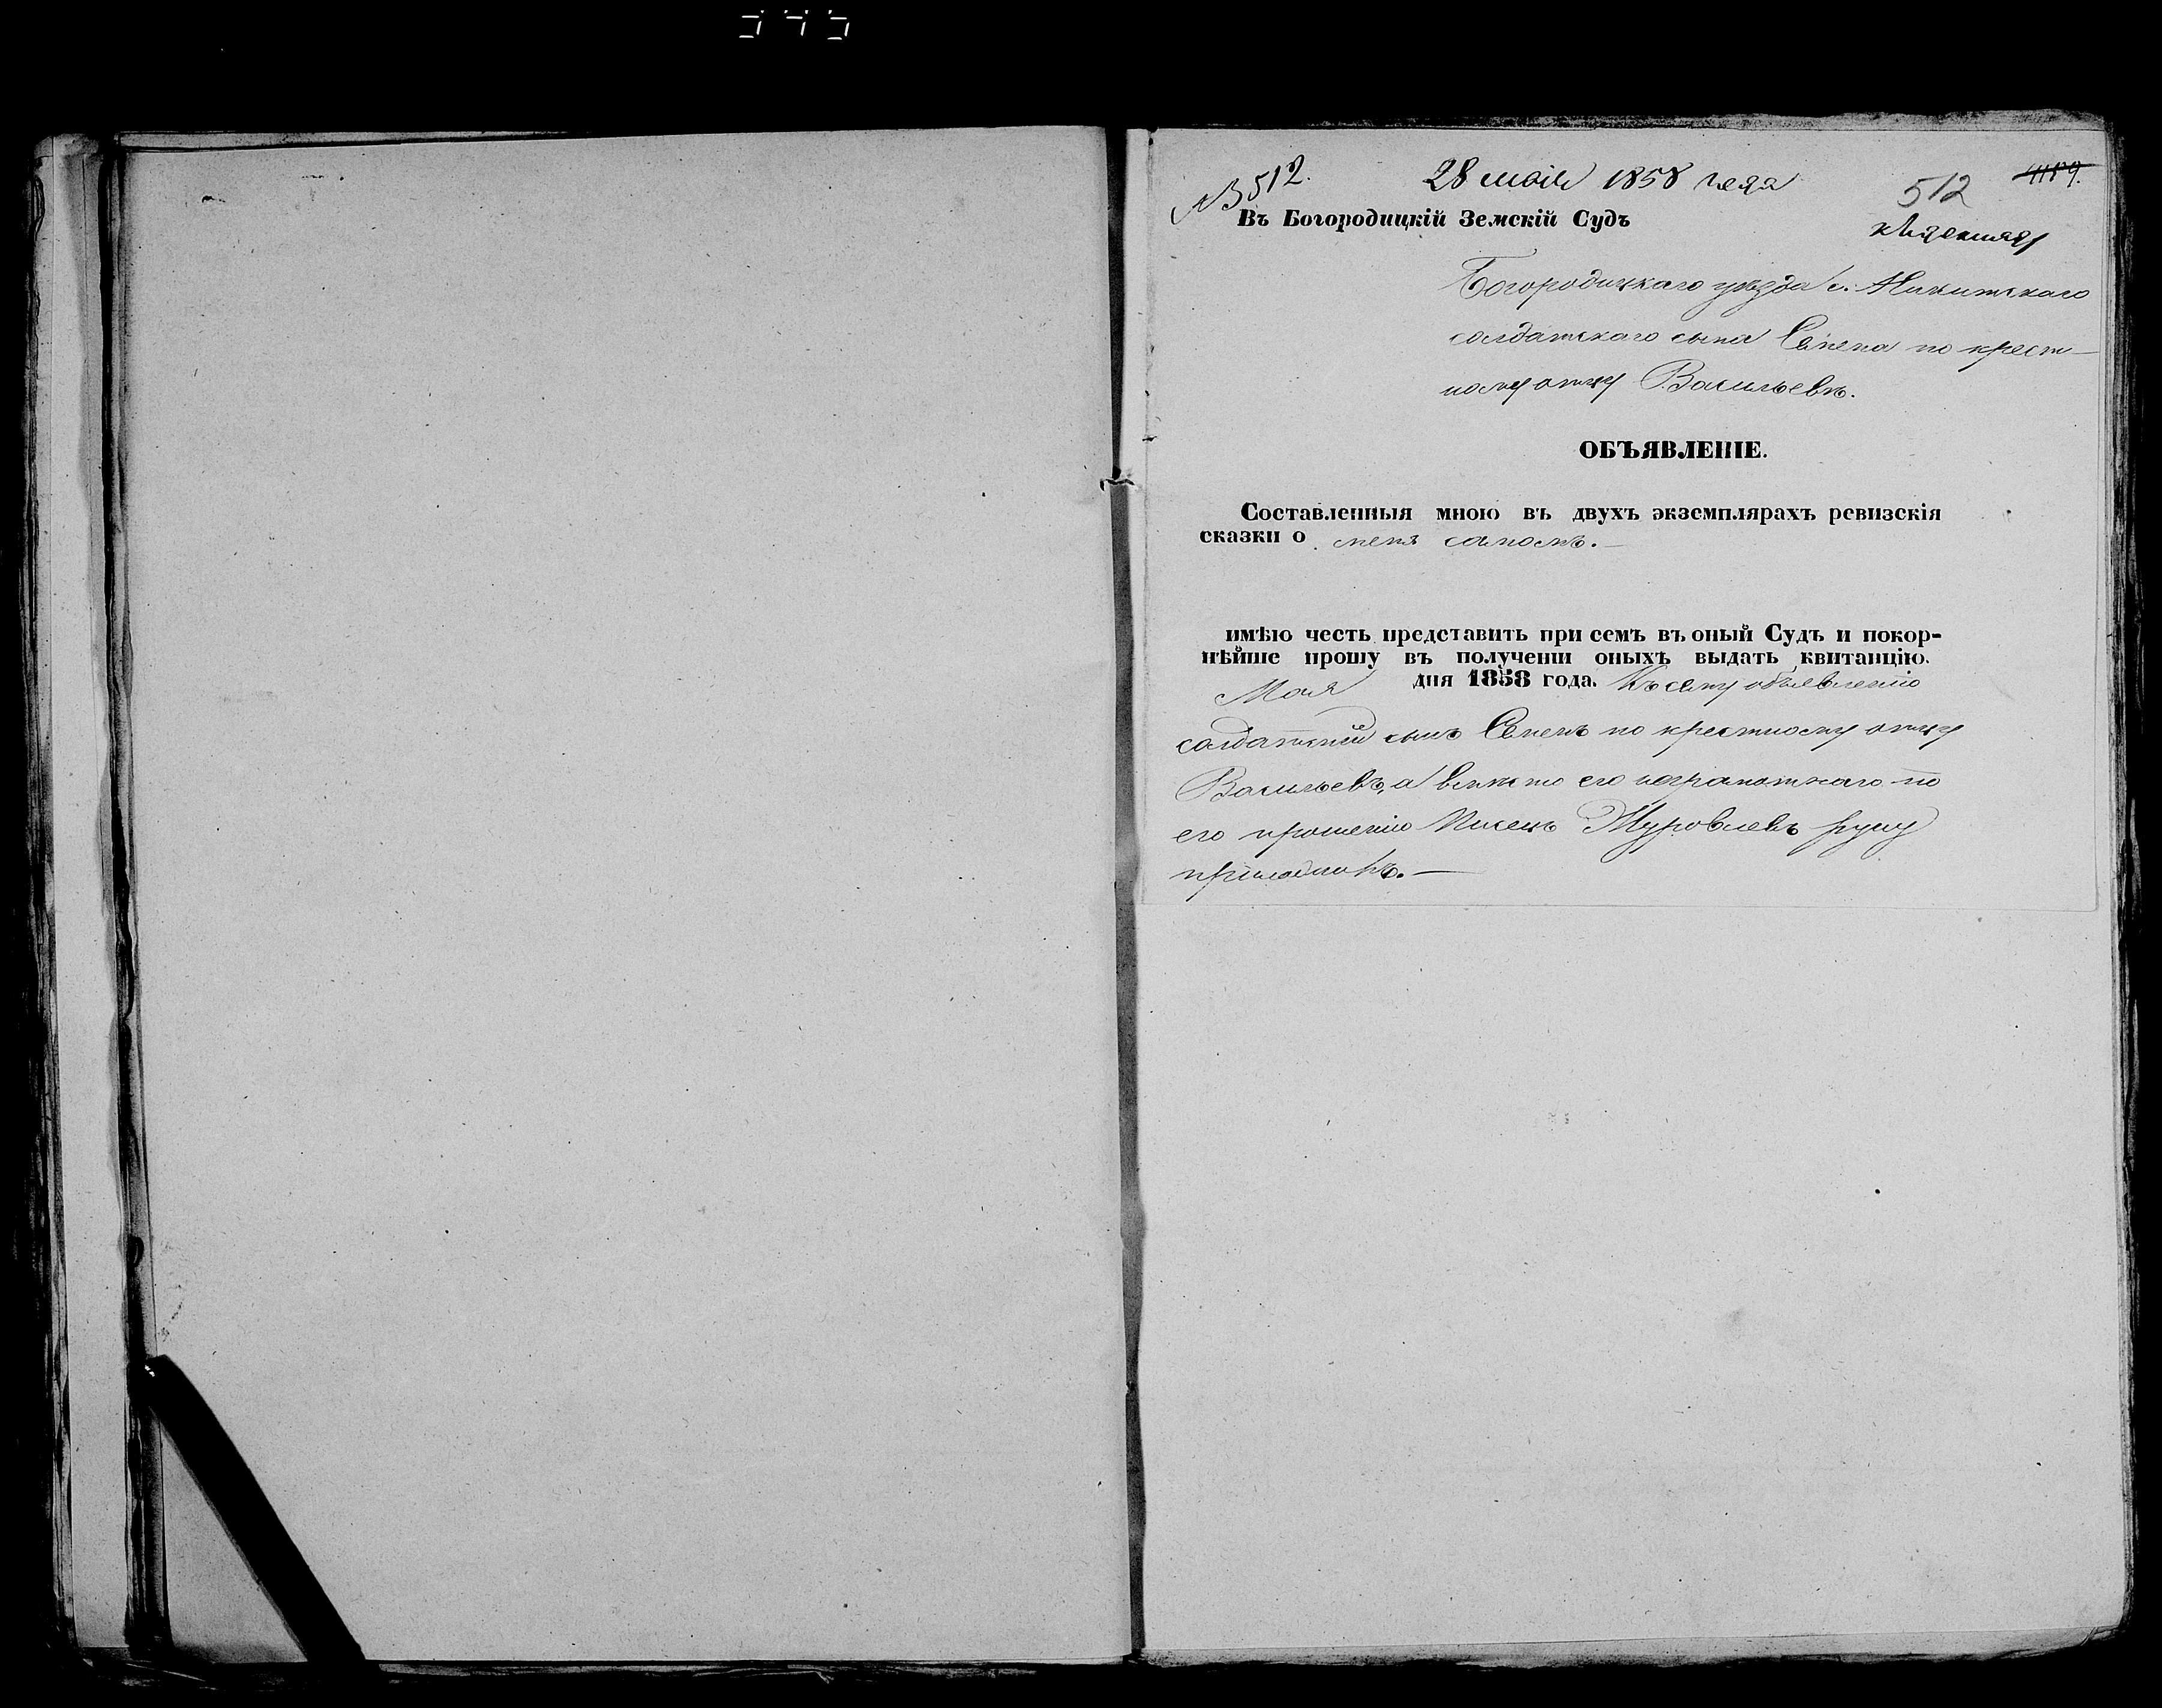 № 512.
28 маія 1858 года
512
1189.
Въ Богородицкій Земскій Судъ
Богородицкаго уѣзда с. Никитскаго
солдатскаго сына Семена по крест-
ному отцу Васильевъ.
ОБЪЯВЛЕНІЕ.
Составленныя мною въ двухъ экземплярахъ ревизскія
сказки о меня самомъ.—
имѣю честь представить при семъ въ оный Судъ и покор-
нѣйше прошу въ полученіи оныхъ выдать квитанцію.
Мая дня 1858 года. Къ сему объявленію
солдатскій сынъ Семенъ по крестному отцу
Васильевъ, а вмѣсто его неграмотнаго по
его прошенію Писецъ Журовлевъ руку
приложилъ.—